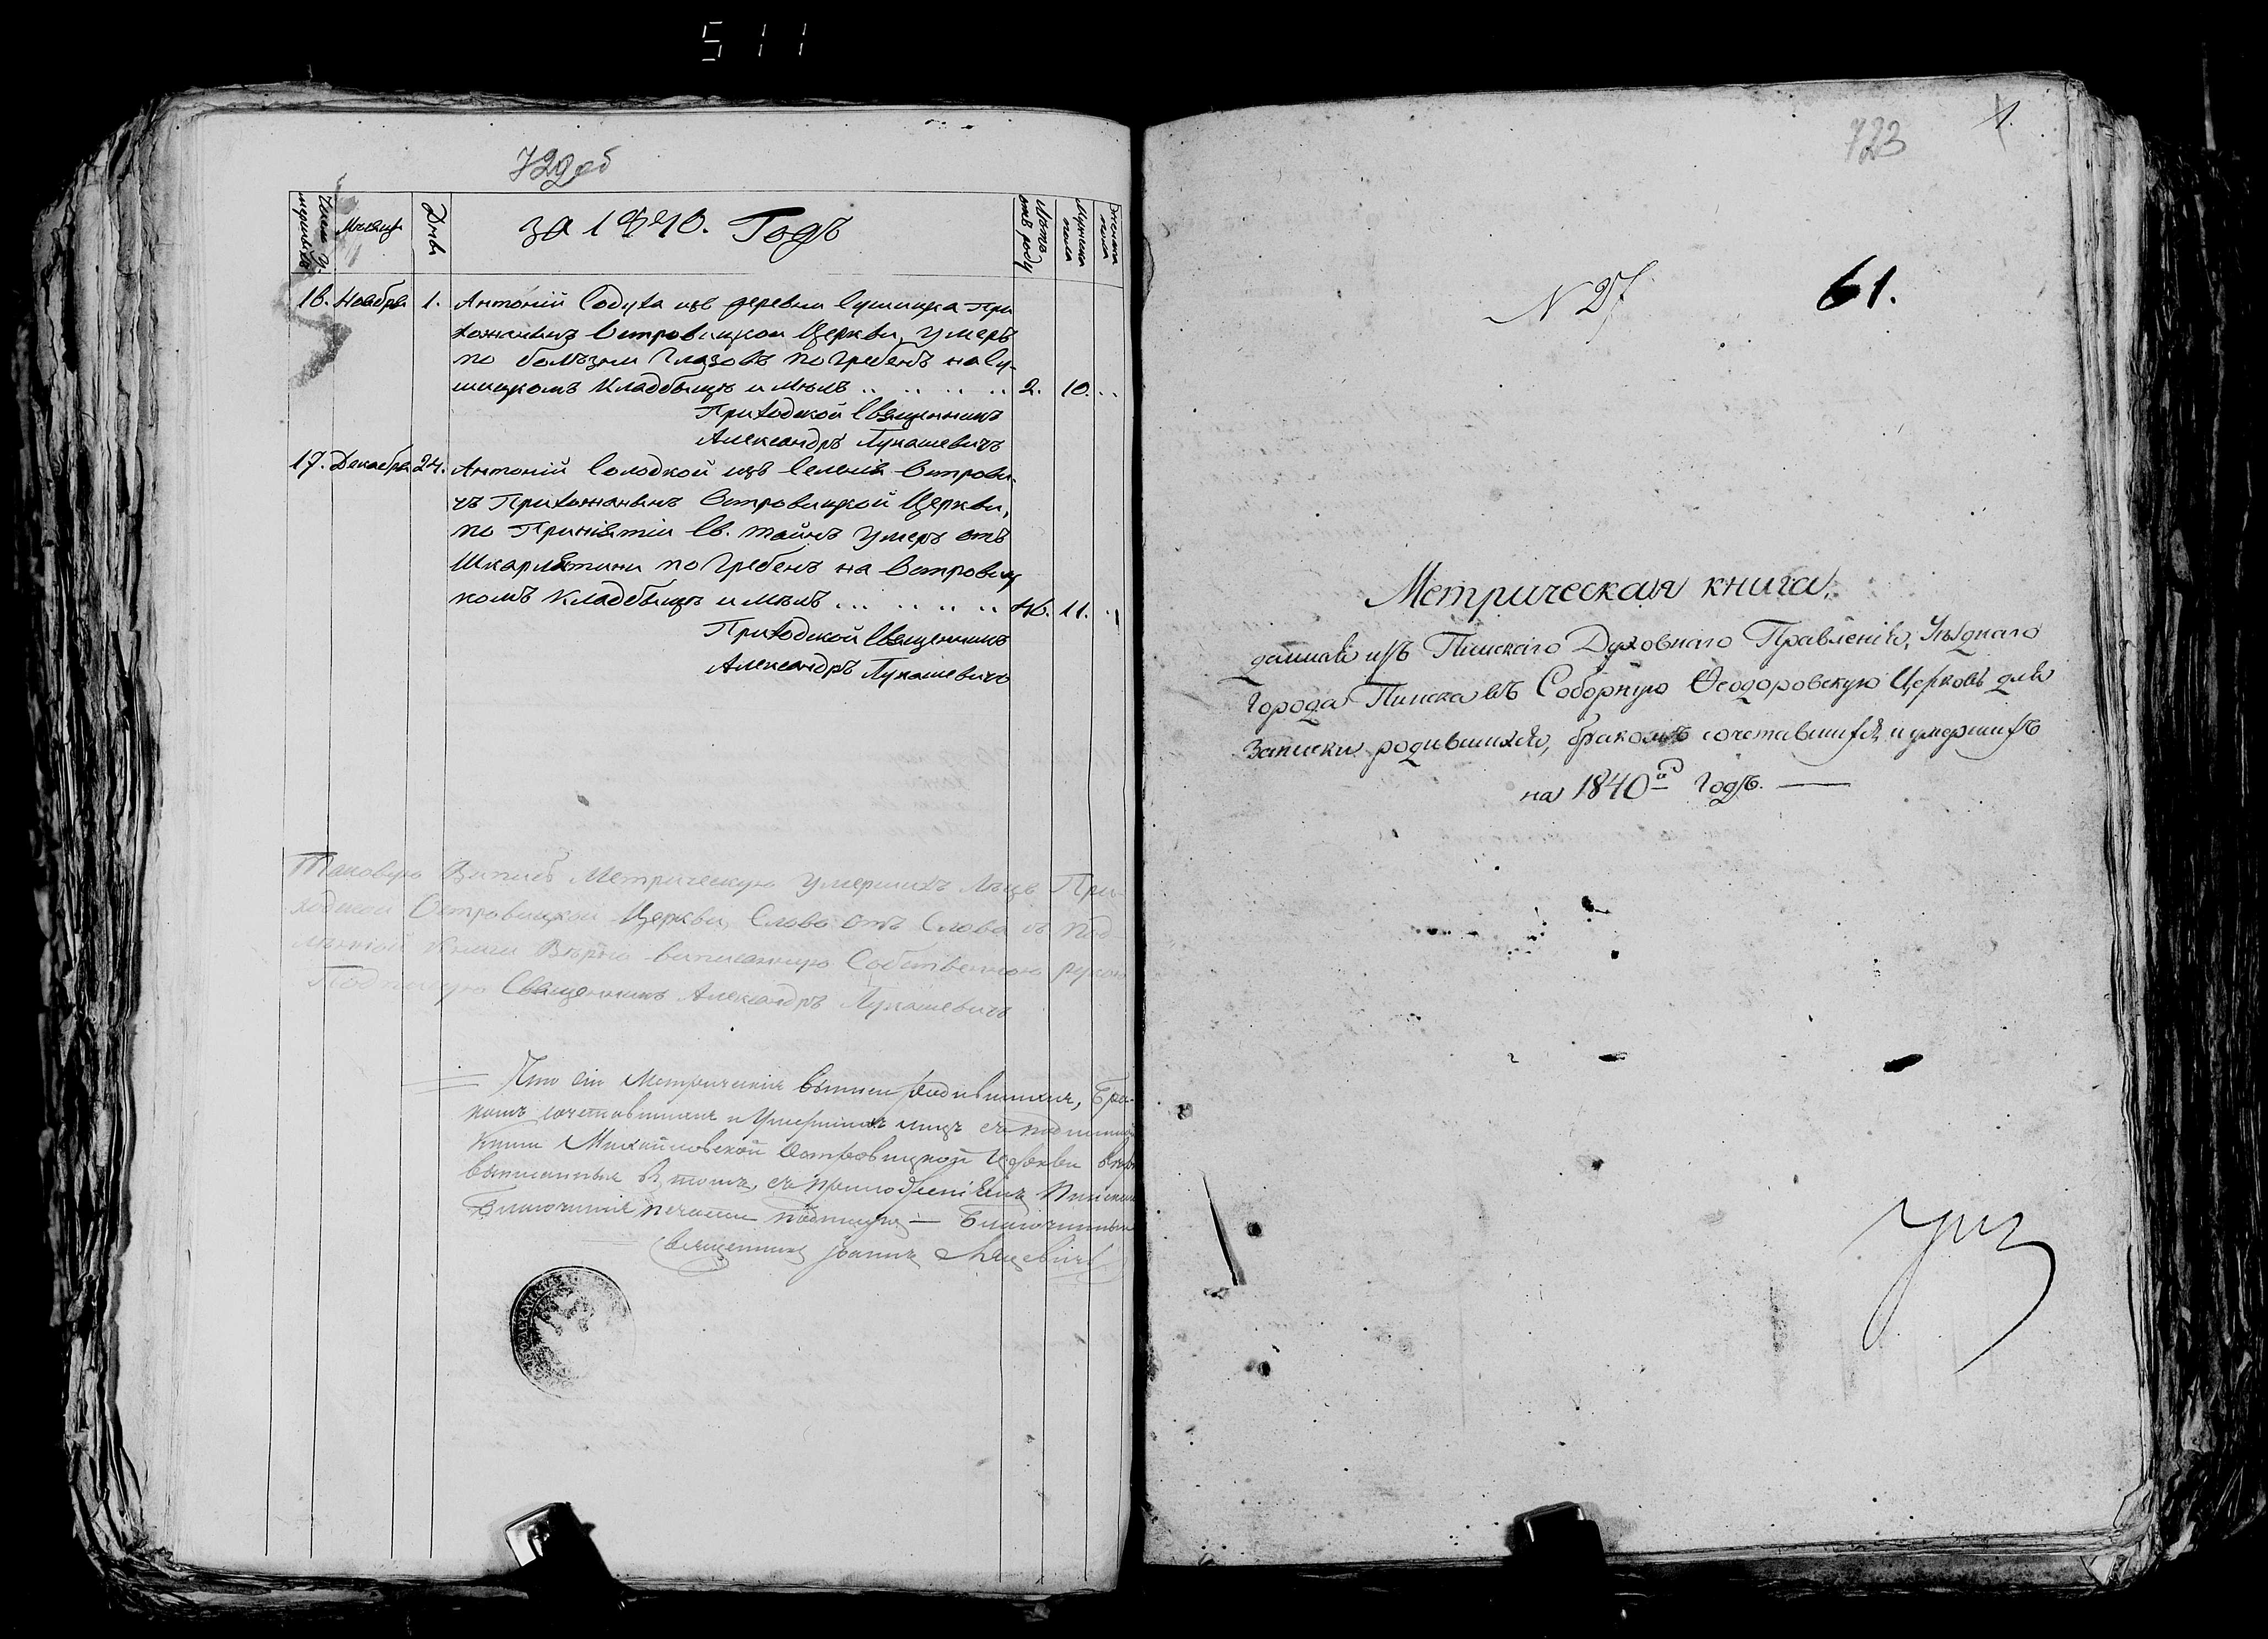 511
722 об
Число умершихъ
Мѣсяцъ
Дни
за 1840. Годъ
Лѣтъ отъ роду
Мужеска пола
Женска пола
16. Ноабря 1. Антоній Содуха изъ деревни Сушицка При
хожанинъ Островицкой Церкви, умеръ
по болѣзни Глазовъ погребенъ на Су-
шицкомъ Кладбыщѣ и мѣлъ .. .. .. .. .. 2. 10. ..
Приходской Священникъ
Александръ Лукашевичъ
17. Декабря 24. Антоній Солодкой изъ Селенія Острови-
чъ Прихожанинъ Островицкой Церкви,
по Принятіи Св. Тайнъ умеръ отъ
Шкарлятини погребенъ на Островиц
комъ Кладбыщѣ и мѣлъ ... .. .. .. .. 46. 11. ..
Приходской Священникъ
Александръ Лукашевичъ
Таковую Випись Метрическую умершихъ Лицъ При-
ходской Островицкой Церкви, Слово отъ Слова съ Под-
линной Книги Вѣрно виписанную Собственною рукою
Подписую Священникъ Александръ Лукашевичъ
Что сіи Метрическія выписи родившихся, Бра-
комъ сочетавшихся и Умершихъ лицъ съ подлинной
Книги Михайловской Островицкой Церкви вѣрно
выписанныя въ томъ, съ приложеніемъ Пинской
Благочинія печати подписуя — Благочинный
Священникъ Іоаннъ
723
1.
N 27
61.
Метрическая книга,
данная изъ Пинскаго Духовнаго Правленія, Уѣзднаго
Города Пинска въ Соборную Ѳеодоровскую Церковь для
Записки родившихся, бракомъ сочетавшихся и умершихъ
на 1840й Годъ. —